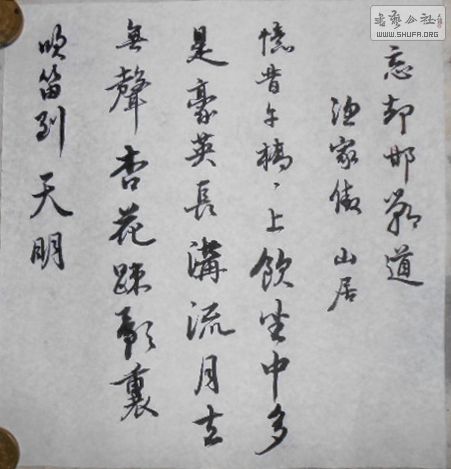 書藝公社
WWW.SHUFA.ORG
忘却邯鄲道
渔家傲 山居
憶昔午橋、上飲坐中多
是豪英長溝流月去
無聲杏花疎影裏
吹笛到天明